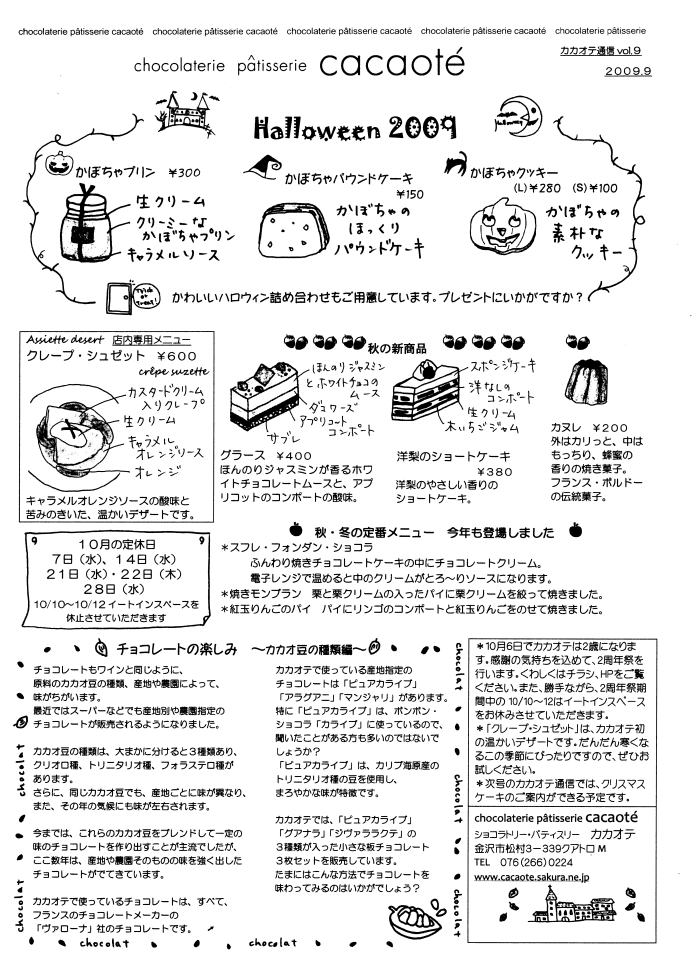 chocolaterie pâtisserie cacaoté chocolaterie pâtisserie cacaoté chocolaterie pâtisserie cacaoté chocolaterie pâtisserie cacaoté chocolaterie pâtisserie
カカオテ通信 vol.9
2009.9
chocolaterie pâtisserie cacaoté
Halloween 2009
かぼちゃプリン ¥300
生クリーム
クリーミーな
かぼちゃプリン
キャラメルソース
かぼちゃパウンドケーキ
¥150
かぼちゃの
ほっくり
パウンドケーキ
かぼちゃクッキー
(L)¥280 (S)¥100
かぼちゃの
素朴な
クッキー
Trick or Treat!
かわいいハロウィン詰め合わせもご用意しています。プレゼントにいかがですか？
Assiette desert 店内専用メニュー
クレープ・シュゼット ¥600
crêpe suzette
カスタードクリーム
入りクレープ
生クリーム
キャラメル
オレンジソース
オレンジ
キャラメルオレンジソースの酸味と
苦みのきいた、温かいデザートです。
秋の新商品
ほんのりジャスミン
とホワイトチョコの
ムース
ダコワーズ
アプリコット
コンポート
サブレ
グラース ¥400
ほんのりジャスミンが香るホワ
イトチョコレートムースと、アプ
リコットのコンポートの酸味。
スポンジケーキ
洋なしの
コンポート
生クリーム
木いちごジャム
洋梨のショートケーキ
¥380
洋梨のやさしい香りの
ショートケーキ。
カヌレ ¥200
外はカリっと、中は
もっちり、蜂蜜の
香りの焼き菓子。
フランス・ボルドー
の伝統菓子。
9 9
１０月の定休日
７日（水）、１４日（水）
２１日（水）・２２日（木）
２８日（水）
10/10～10/12 イートインスペースを
休止させていただきます
秋・冬の定番メニュー 今年も登場しました
＊スフレ・フォンダン・ショコラ
ふんわり焼きチョコレートケーキの中にチョコレートクリーム。
電子レンジで温めると中のクリームがとろ～りソースになります。
＊焼きモンブラン 栗と栗クリームの入ったパイに栗クリームを絞って焼きました。
＊紅玉りんごのパイ パイにリンゴのコンポートと紅玉りんごをのせて焼きました。
チョコレートの楽しみ ～カカオ豆の種類編～
チョコレートもワインと同じように、
原料のカカオ豆の種類、産地や農園によって、
味がちがいます。
最近ではスーパーなどでも産地別や農園指定の
チョコレートが販売されるようになりました。
カカオ豆の種類は、大まかに分けると３種類あり、
クリオロ種、トリニタリオ種、フォラステロ種が
あります。
さらに、同じカカオ豆でも、産地ごとに味が異なり、
また、その年の気候にも味が左右されます。
今までは、これらのカカオ豆をブレンドして一定の
味のチョコレートを作り出すことが主流でしたが、
ここ数年は、産地や農園そのものの味を強く出した
チョコレートがでてきています。
カカオテで使っているチョコレートは、すべて、
フランスのチョコレートメーカーの
「ヴァローナ」社のチョコレートです。
カカオテで使っている産地指定の
チョコレートは「ピュアカライブ」
「アラグアニ」「マンジャリ」があります。
特に「ピュアカライブ」は、ボンボン・
ショコラ「カライブ」に使っているので、
聞いたことがある方も多いのではないで
しょうか？
「ピュアカライブ」は、カリブ海原産の
トリニタリオ種の豆を使用し、
まろやかな味が特徴です。
カカオテでは、「ピュアカライブ」
「グアナラ」「ジヴァララクテ」の
３種類が入った小さな板チョコレート
３枚セットを販売しています。
たまにはこんな方法でチョコレートを
味わってみるのはいかがでしょう？
chocolat
chocolat
chocolat
chocolat
chocolat
chocolat
chocolat
＊10月6日でカカオテは2歳になりま
す。感謝の気持ちを込めて、2周年祭を
行います。くわしくはチラシ、HPをご覧
ください。また、勝手ながら、2周年祭期
間中の 10/10～12はイートインスペース
をお休みさせていただきます。
＊「クレープ・シュゼット」は、カカオテ初
の温かいデザートです。だんだん寒くな
るこの季節にぴったりですので、ぜひお
試しください。
＊次号のカカオテ通信では、クリスマス
ケーキのご案内ができる予定です。
chocolaterie pâtisserie cacaoté
ショコラトリー・パティスリー カカオテ
金沢市松村３－３３９クアトロＭ
TEL 076(266)0224
www.cacaote.sakura.ne.jp